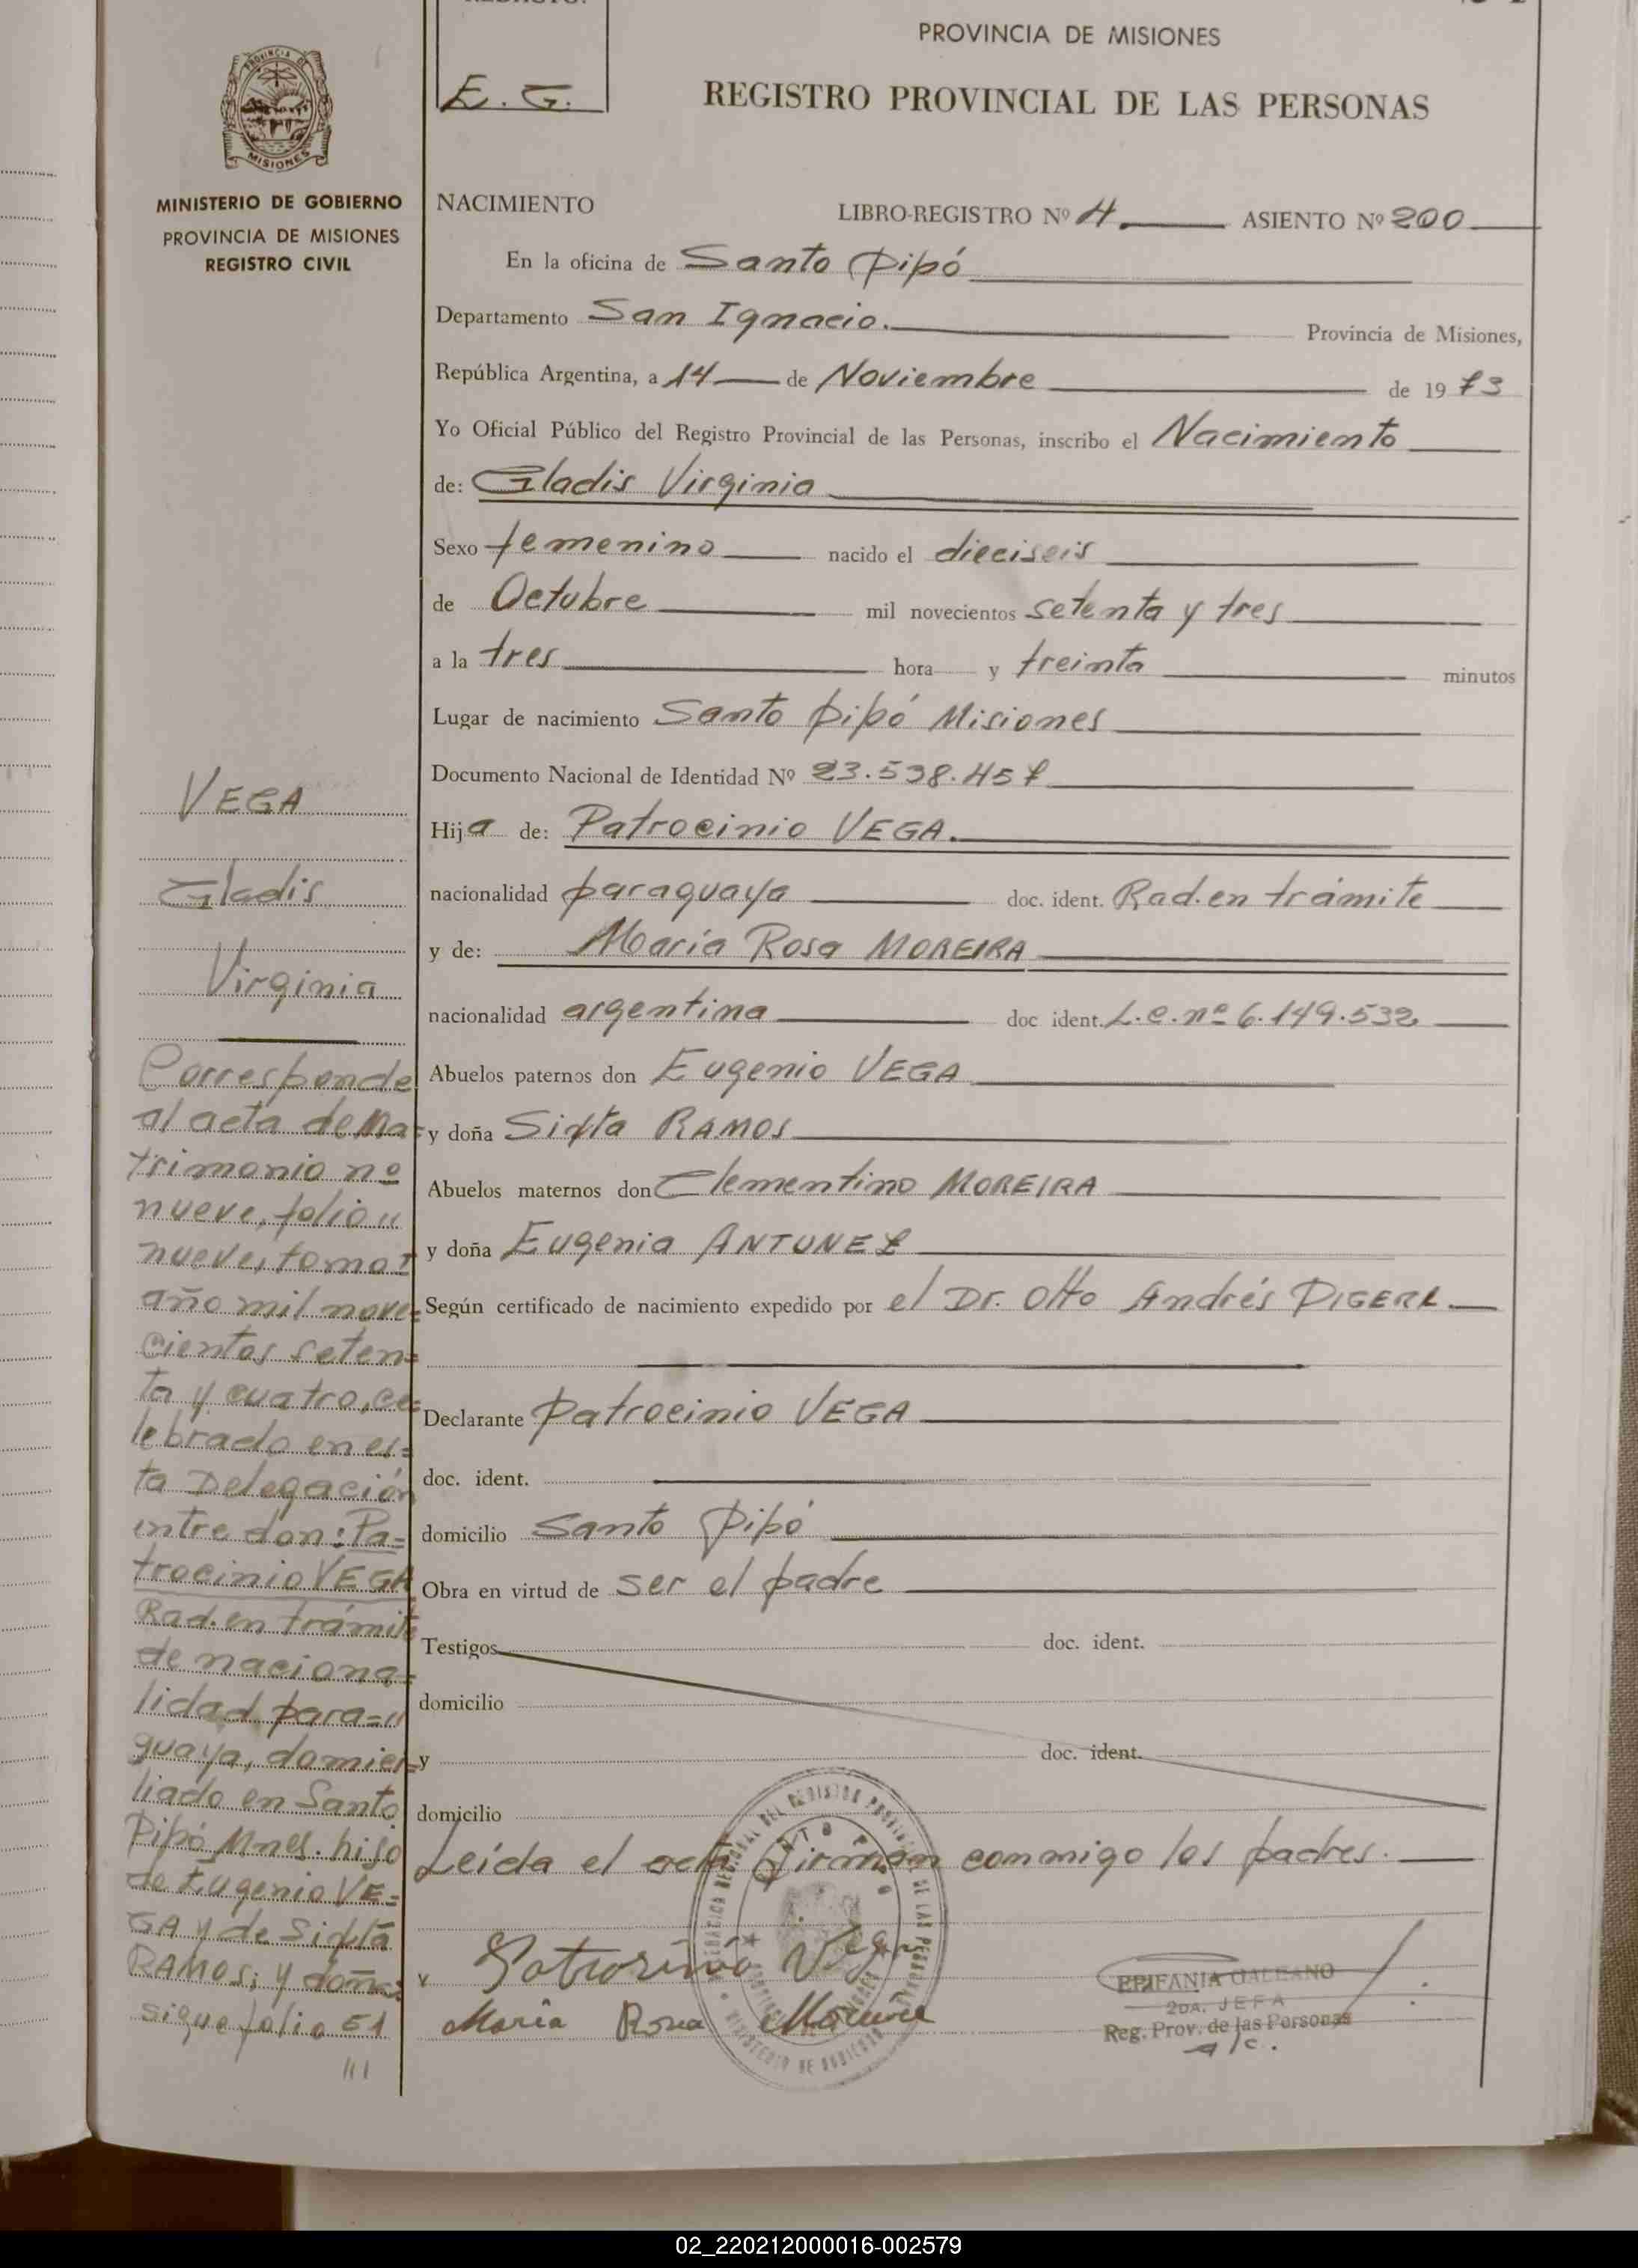 E. G.
PROVINCIA DE MISIONES
REGISTRO PROVINCIAL DE LAS PERSONAS
PROVINCIA DE
MISIONES
MINISTERIO DE GOBIERNO
PROVINCIA DE MISIONES
REGISTRO CIVIL
NACIMIENTO
LIBRO-REGISTRO Nº 4. ASIENTO Nº 200
En la oficina de Santo Pipó
Departamento San Ignacio. Provincia de Misiones,
República Argentina, a 14 de Noviembre de 1973
Yo Oficial Público del Registro Provincial de las Personas, inscribo el Nacimiento
de: Gladis Virginia
Sexo femenino nacido el dieciseis
de Octubre mil novecientos setenta y tres
a la tres hora y treinta minutos
Lugar de nacimiento Santo Pipó Misiones
Documento Nacional de Identidad Nº 23.538.457
Hija de: Patrocinio VEGA.
nacionalidad paraguaya doc. ident. Rad. en trámite
y de: María Rosa MOREIRA
nacionalidad argentina doc ident. L.C. nº 6.149.532
Abuelos paternos don Eugenio VEGA
y doña Sixta RAMOS
Abuelos maternos don Clementino MOREIRA
y doña Eugenia ANTUNEZ
Según certificado de nacimiento expedido por el Dr. Otto Andrés DIGERL.
Declarante Patrocinio VEGA
doc. ident.
domicilio Santo Pipó
Obra en virtud de ser el padre
Testigos doc. ident.
domicilio
y doc. ident.
domicilio
Leída el acta firman conmigo los padres.
Patrosinio Vega
María Rosa Moreira
EPIFANIA GALEANO
2DA. JEFA
Reg. Prov. de las Personas
a/c.
VEGA
Gladis
Virginia
Corresponde
al acta de Ma-
trimonio nº
nueve, folio "
nueve, tomo I
año mil nove=
cientos seten=
ta y cuatro, ce=
lebrado en es=
ta Delegación
entre don: Pa=
trocinio VEGA
Rad. en trámite
de naciona=
lidad para="
guaya, domici=
liado en Santo
Pipó Mnes. hijo
de Eugenio VE=
GA y de Sixta
RAMOS; y doña:
sigue folio 51
///
02_220212000016-002579